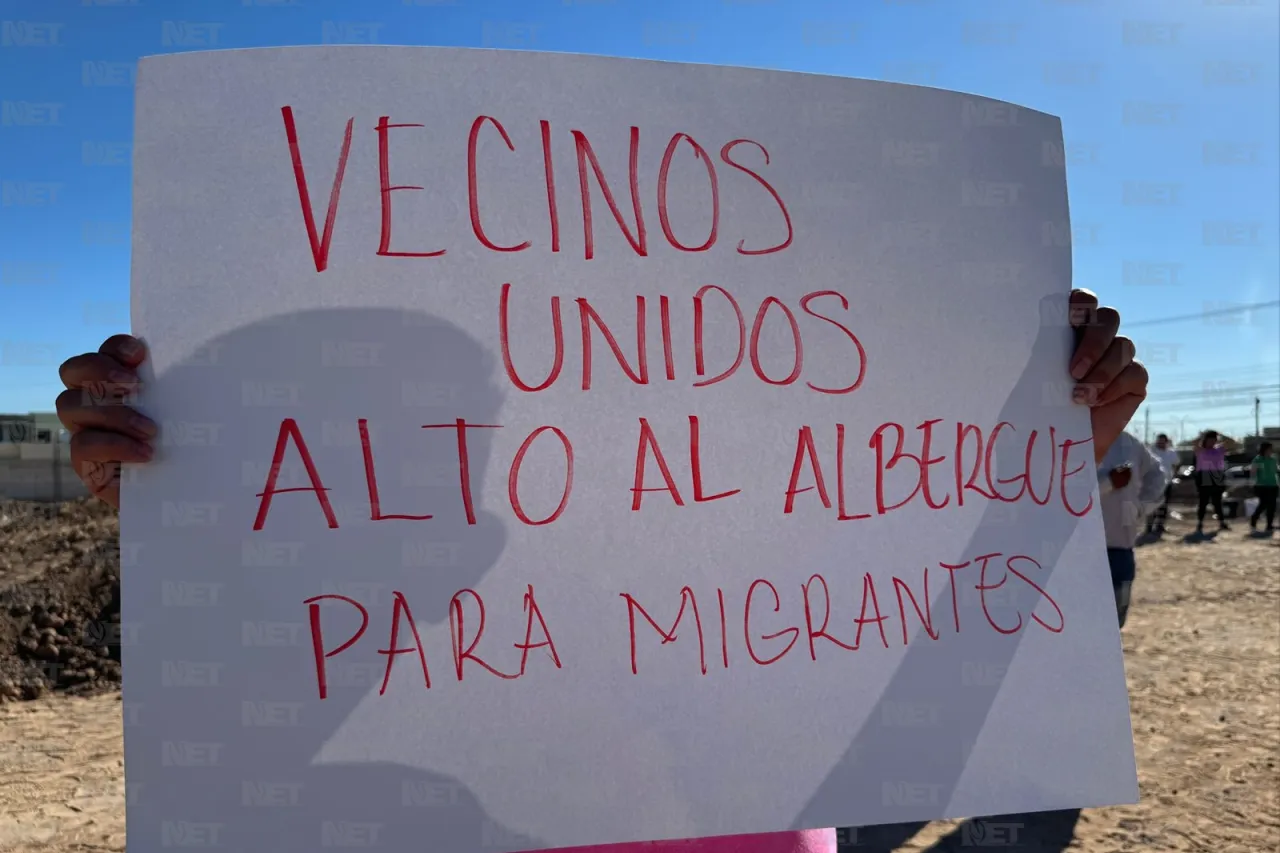 VECINOS
UNIDOS
ALTO AL ALBERGUE
PARA MIGRANTES